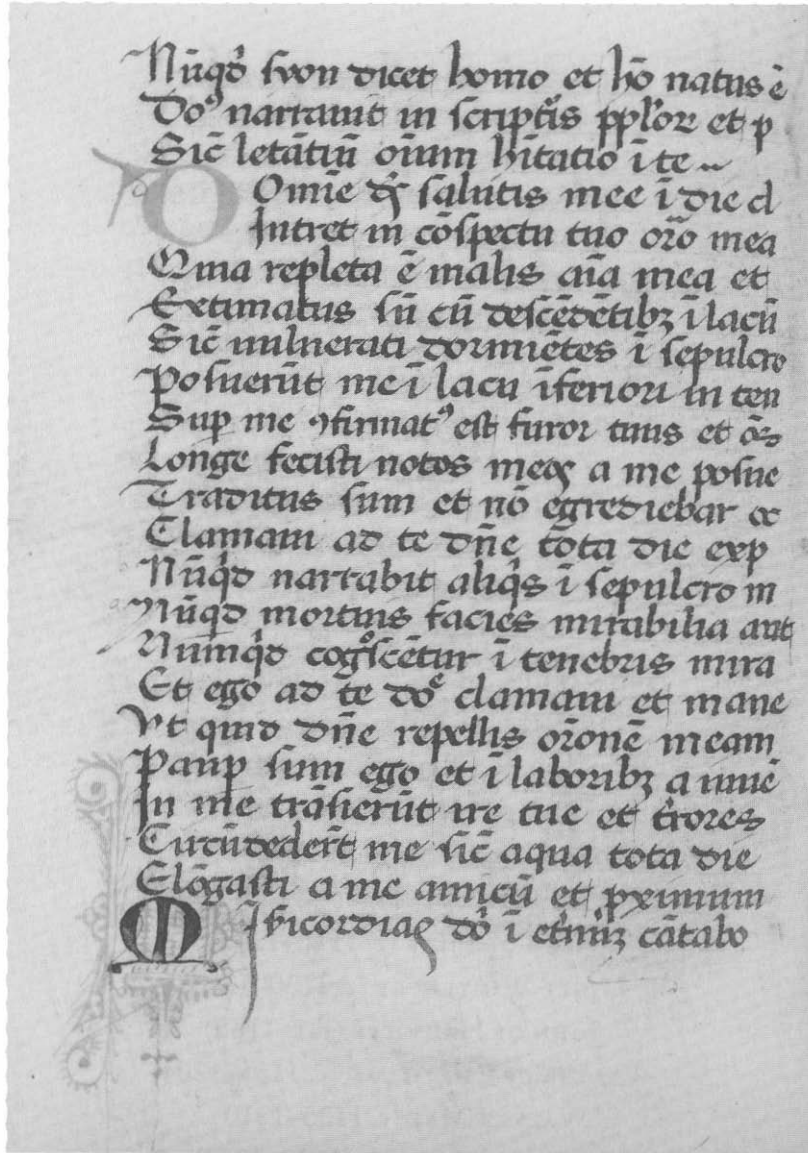 Nūqd̄ syon dicet homo et hō natus ē
Do⁹ narrauit in scriptis pplor̄ et p
Sic̄ letātiū oīum hītatio ī te
Domīe ds̄ salutis mee ī die cl
Intret in cōspectu tuo or̄o mea
Quia repleta ē malis aīa mea et
Extimatus sū cū descēdētibꝫ ī lacū
Sic̄ uulnerati dormiētes ī sepulcro
Posuerūt me ī lacu īferiori in ten
Sup̱ me ꝯfirmat⁹ est furor tuus et
Longe fecisti notos meos a me posue
Traditus sum et nō egrediebar oc
Clamaui ad te dn̄e tota die exp
Nūqd̄ narrabit aliqs̄ ī sepulcro m
Nūqd̄ mortuis facies mirabilia aut
Numqd̄ cogͦscētur ī tenebris mira
Et ego ad te doᵉ clamaui et mane
Vt quid dn̄e repellis or̄onē meam
Paup̱ sum ego et ī laboribꝫ a iuuē
In me trāsierūt ire tue et tr̄ores
Circūdeder̄t me sic̄ aqua tota die
Elōgasti a me amicū et pximum
Misīcordias do̅ ī etn̄uꝫ cātabo